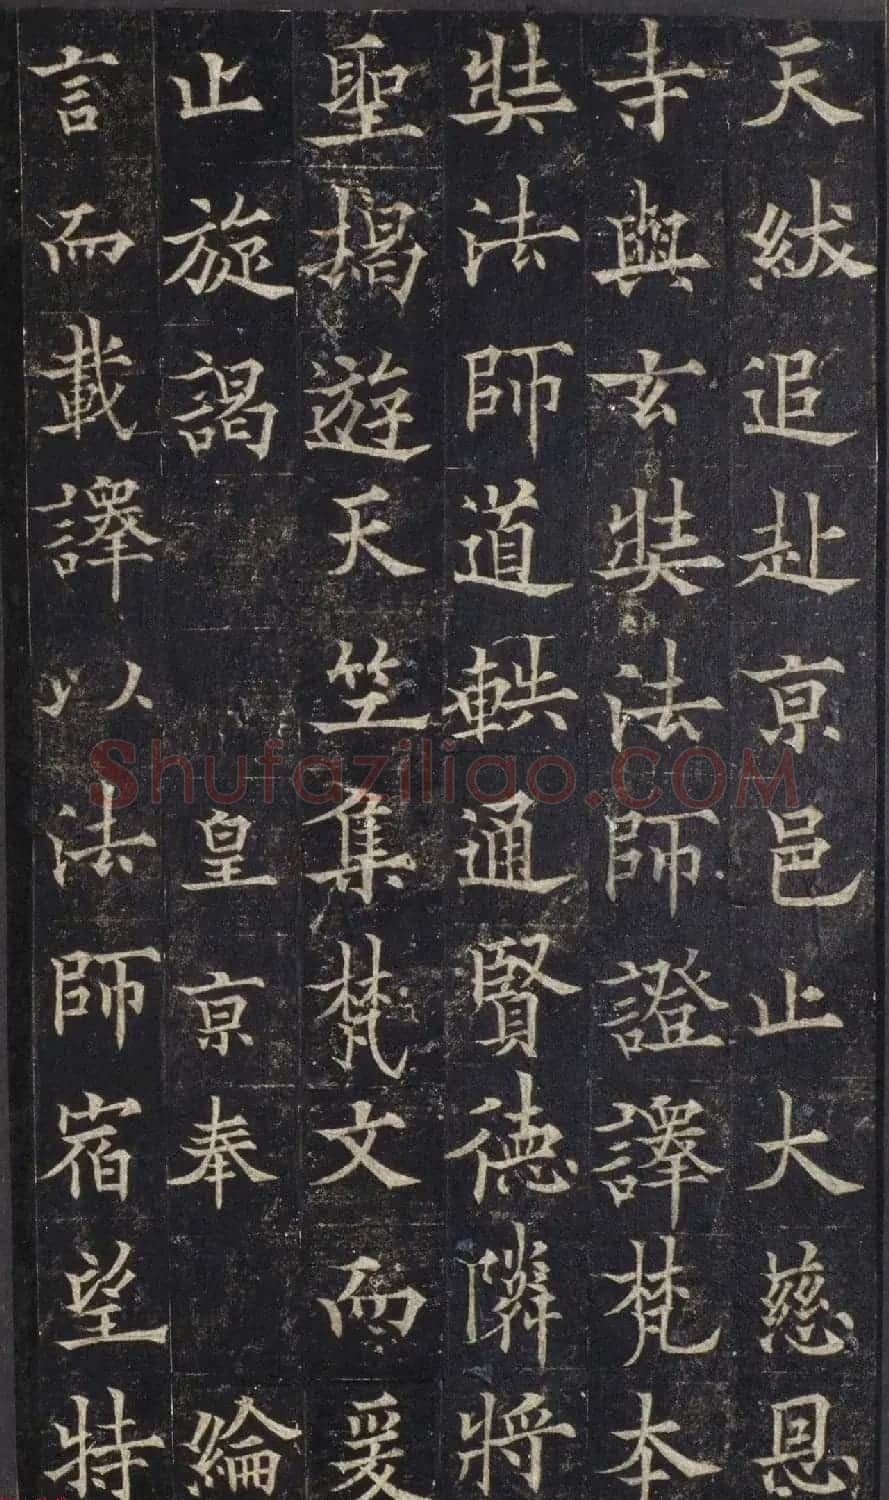 天紱追赴亰邑止大慈恩
寺與玄奘法師證譯梵本
奘法師道軼通賢德隣將
聖揭遊天竺集梵文而爰
止旋謁　皇亰奉　綸
言而載譯以法師宿望特
Shufaziliao.COM